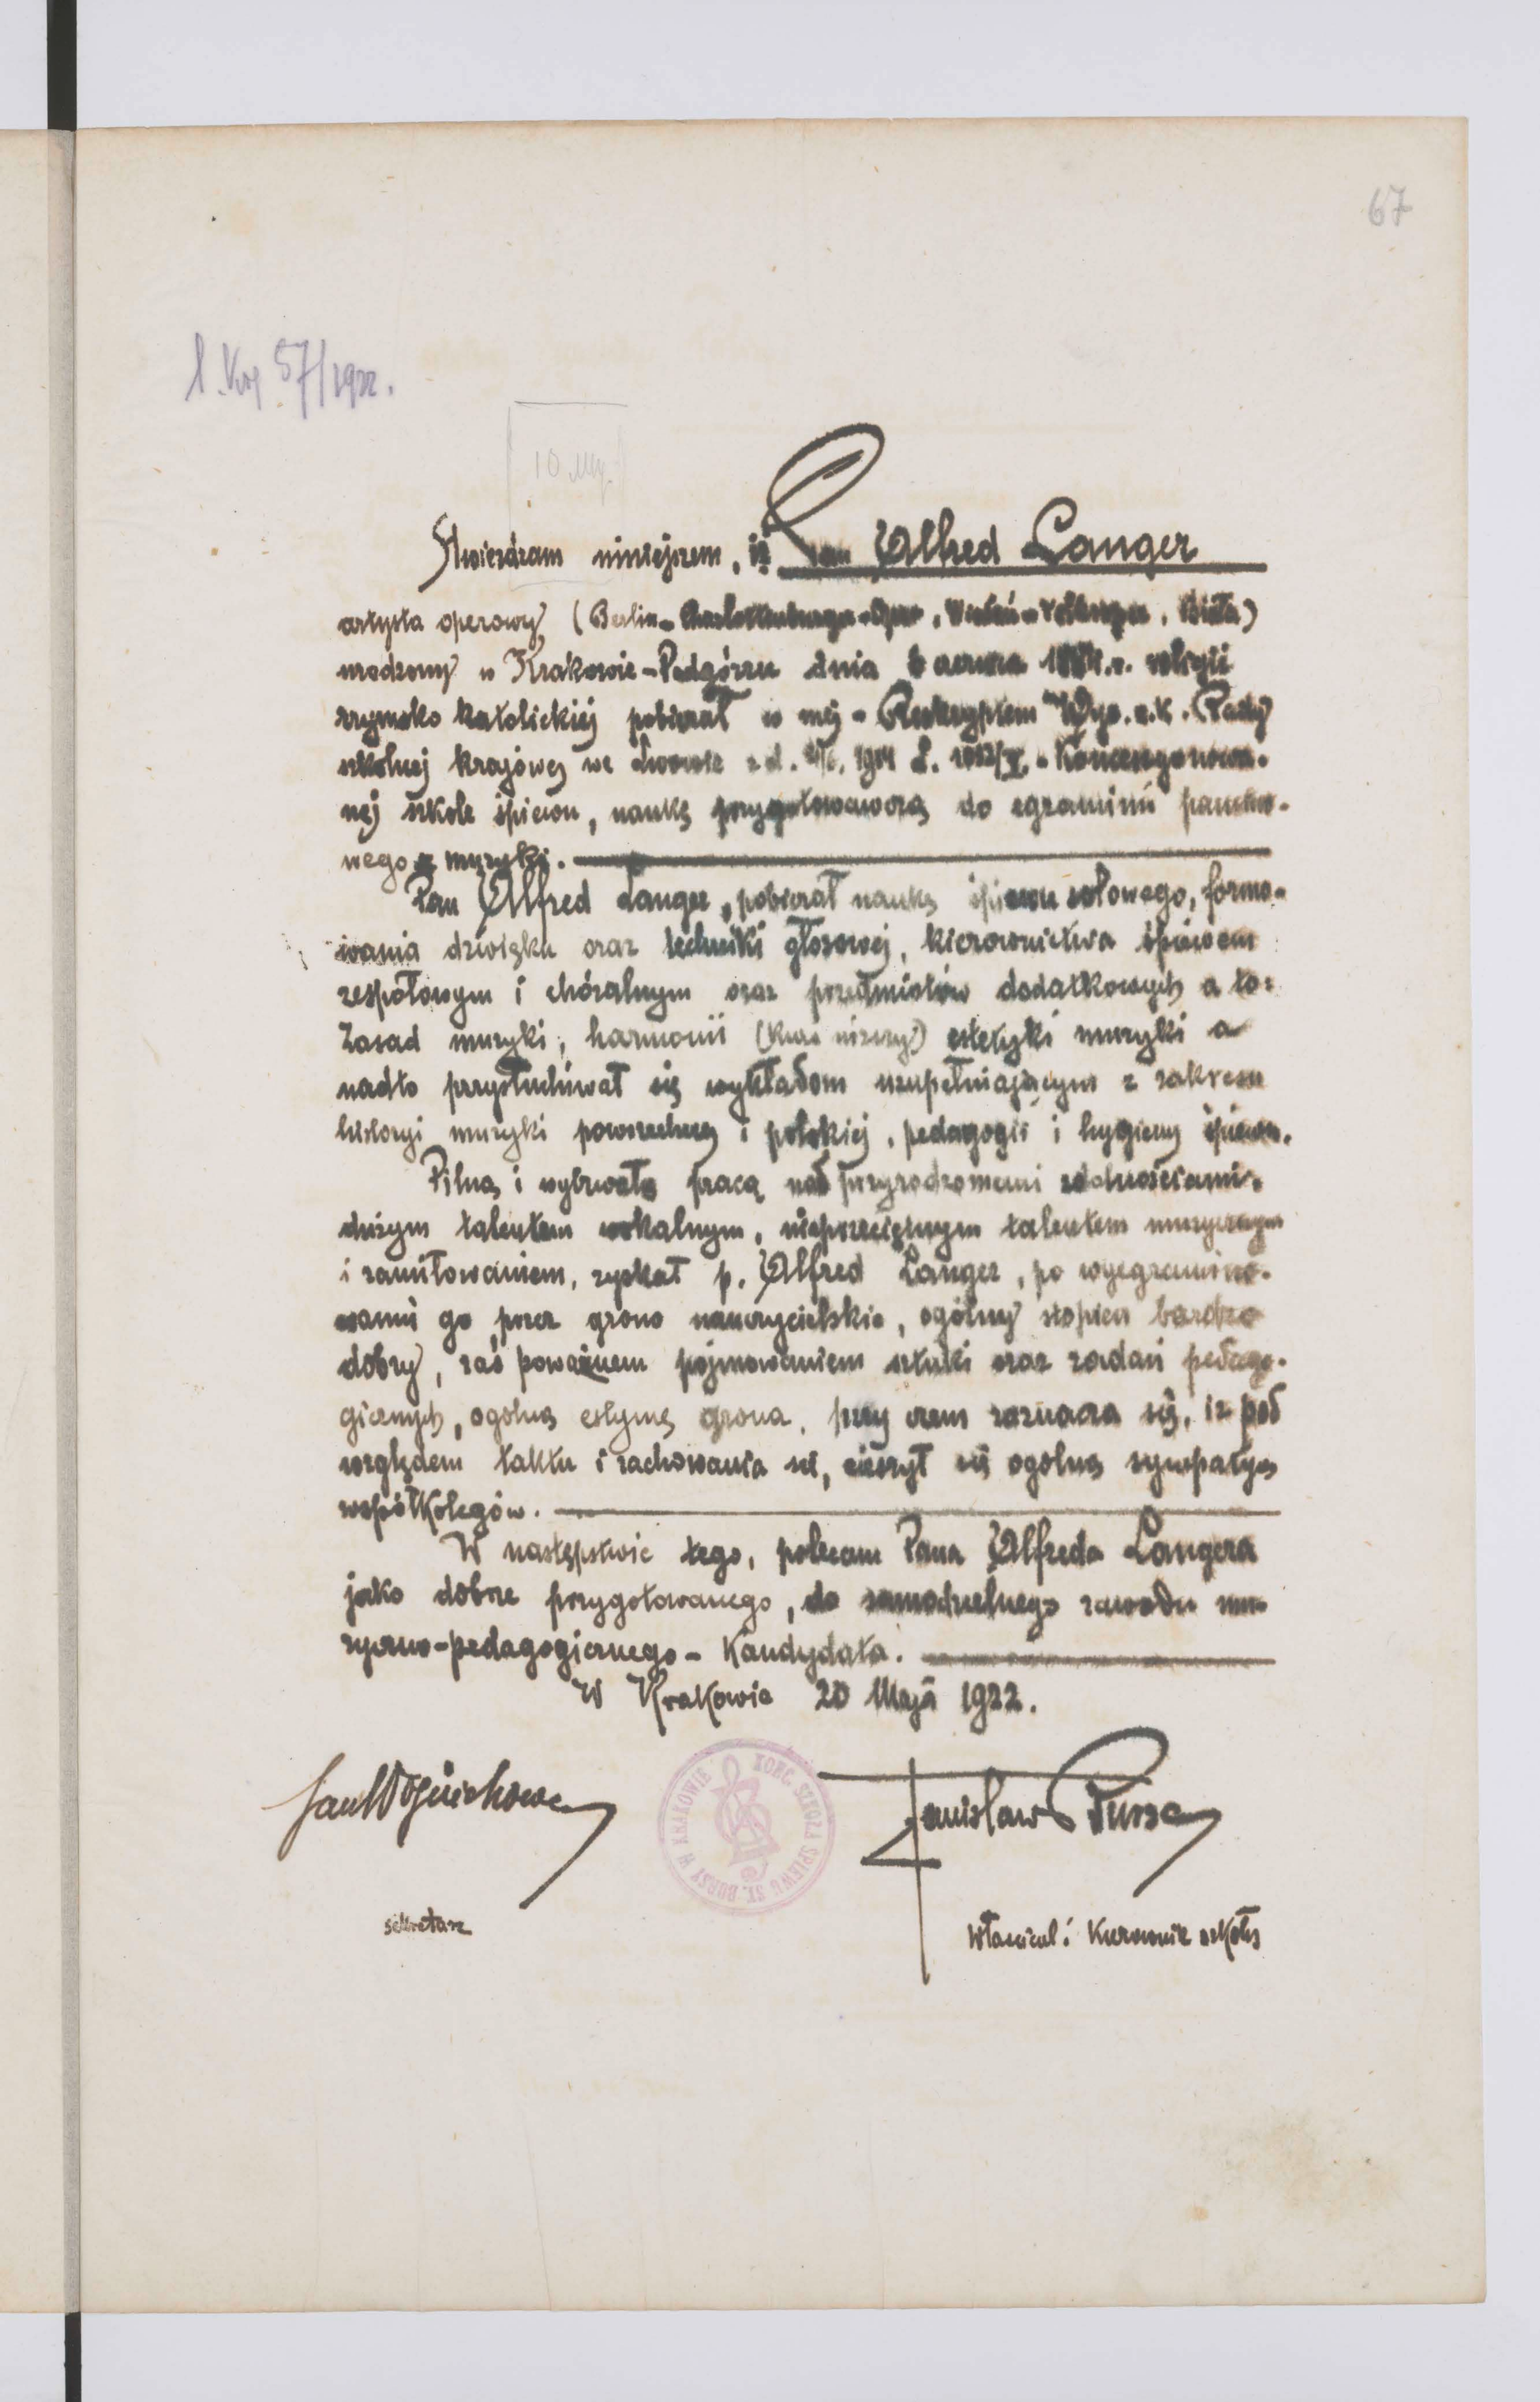 67
57/1922.
10
Stwierdzam niniejszem, iż Pan Alfred Langer
artysta operowy (Berlin - Charlottenburger-Oper, Wiedeń - Volksoper, Biała)
urodzony w Krakowie-Podgórzu dnia 6 czerwca religii
rzymsko katolickiej pobierał w mej - Reskryptem Wys. c.k. Rady
szkolnej krajowej we Lwowie z d. 1904 L. - Koncesyonowa-
nej szkole śpiewu, naukę przygotowawczą do egzaminu państwo-
wego z muzyki.
Pan Alfred Langer, pobierał naukę śpiewu solowego, formo-
wania dźwięku oraz techniki głosowej, kierownictwa śpiewem
zespołowym i chóralnym oraz przedmiotów dodatkowych a to:
Zasad muzyki, harmonii (kurs niższy) estetyki muzyki a
nadto przysłuchiwał się wykładom uzupełniającym z zakresu
historyi muzyki powszechnej i polskiej, pedagogii i hygieny śpiewu.
Pilną i wytrwałą pracą nad przyrodzonemi zdolnościami,
dużym talentem wokalnym, nieprzeciętnym talentem muzycznym
i zamiłowaniem, zyskał p. Alfred Langer, po wyegzamino-
waniu go przez grono nauczycielskie, ogólny stopień bardzo
dobry, zaś poważnem pojmowaniem sztuki oraz zadań pedago-
gicznych, ogólną estymę grona, przy czem zaznacza się, iż pod
względem taktu i zachowania się, cieszył się ogólną sympatyą
współkolegów.
W następstwie tego, polecam Pana Alfreda Langera
jako dobrze przygotowanego, do samodzielnego zawodu mu-
zyczno-pedagogicznego - Kandydata.
W Krakowie 20 Maja 1922.
KONC. SZKOŁA ŚPIEWU ST. BURSY W KRAKOWIE
Stanisław Bursa
sekretarz
Właściciel i Kierownik szkoły